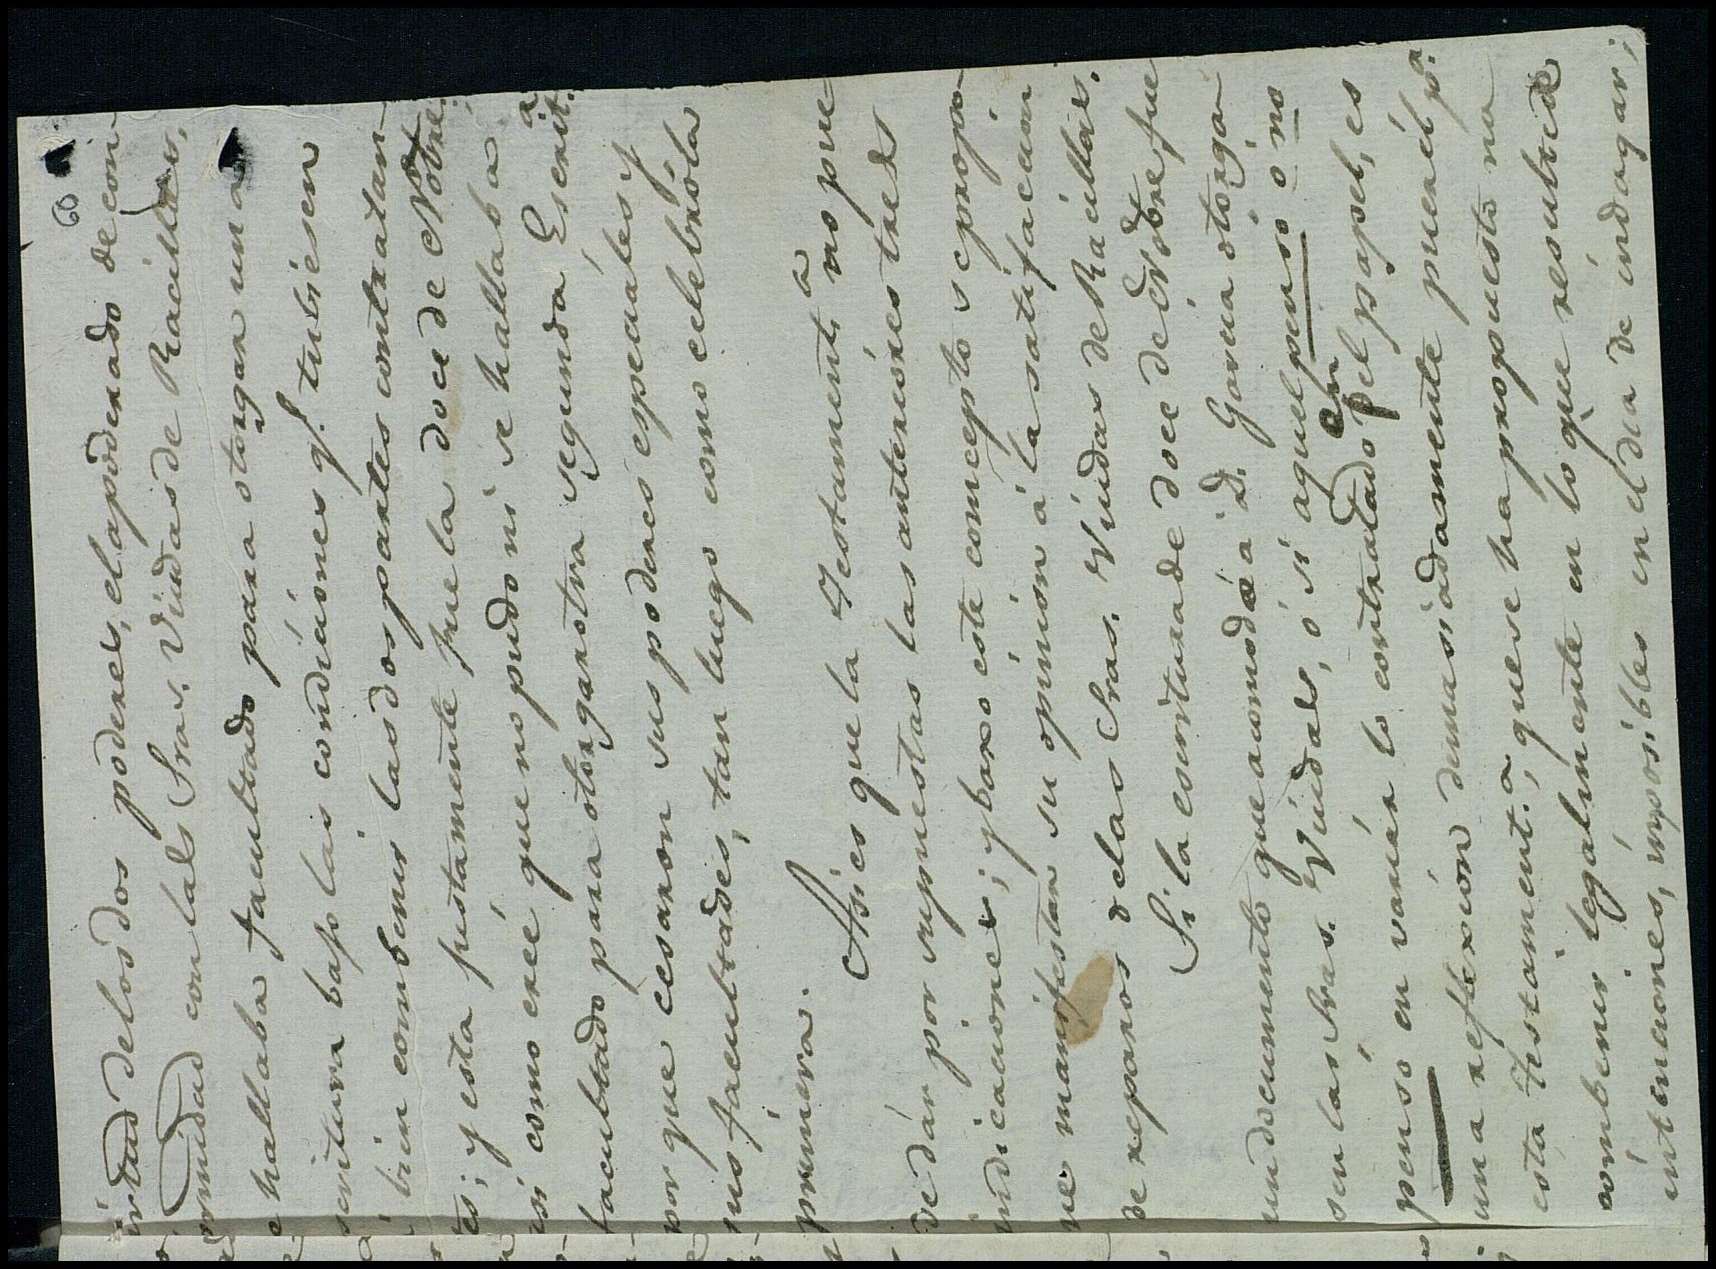 60
irtud de los dos poderes, el apoderado de con
formidad con las Sras. Viudas de Racillar,
e hallaba facultado para otorgar una
scritura bajo las condiciones q.e tubiesen
á bien combenir las dos partes contratan-
tes; y esta justamente fue la doce de Nobre.
asi como creé que no pudo ni se hallaba
facultado para otorgar otra segunda Escrit.a
por que cesaron sus poderes especiales y
sus facultades, tan luego como celebró la
primera.
Asi es que la Testament.a no pue
de dár por supuestas las anteriores tres
indicaciones; y baxo este concepto s e propo
ne manifestar su opinion á la satisfaccion
de reparos de las Sras. Viudas de Racillar.
Si la escritura de doce de Nobre fue
un documento que acomodó a D. Garcia otorgar
sen las Sras. Viudas, ó si aquel penso ó no
penso en variar lo contratado en el papel, es
una reflexion demasiadamente pueril p.a
esta Testament.a, que se ha propuesto no
combenir legalmente en lo que resulta de
intenciones, imposibles en el dia de indagar,